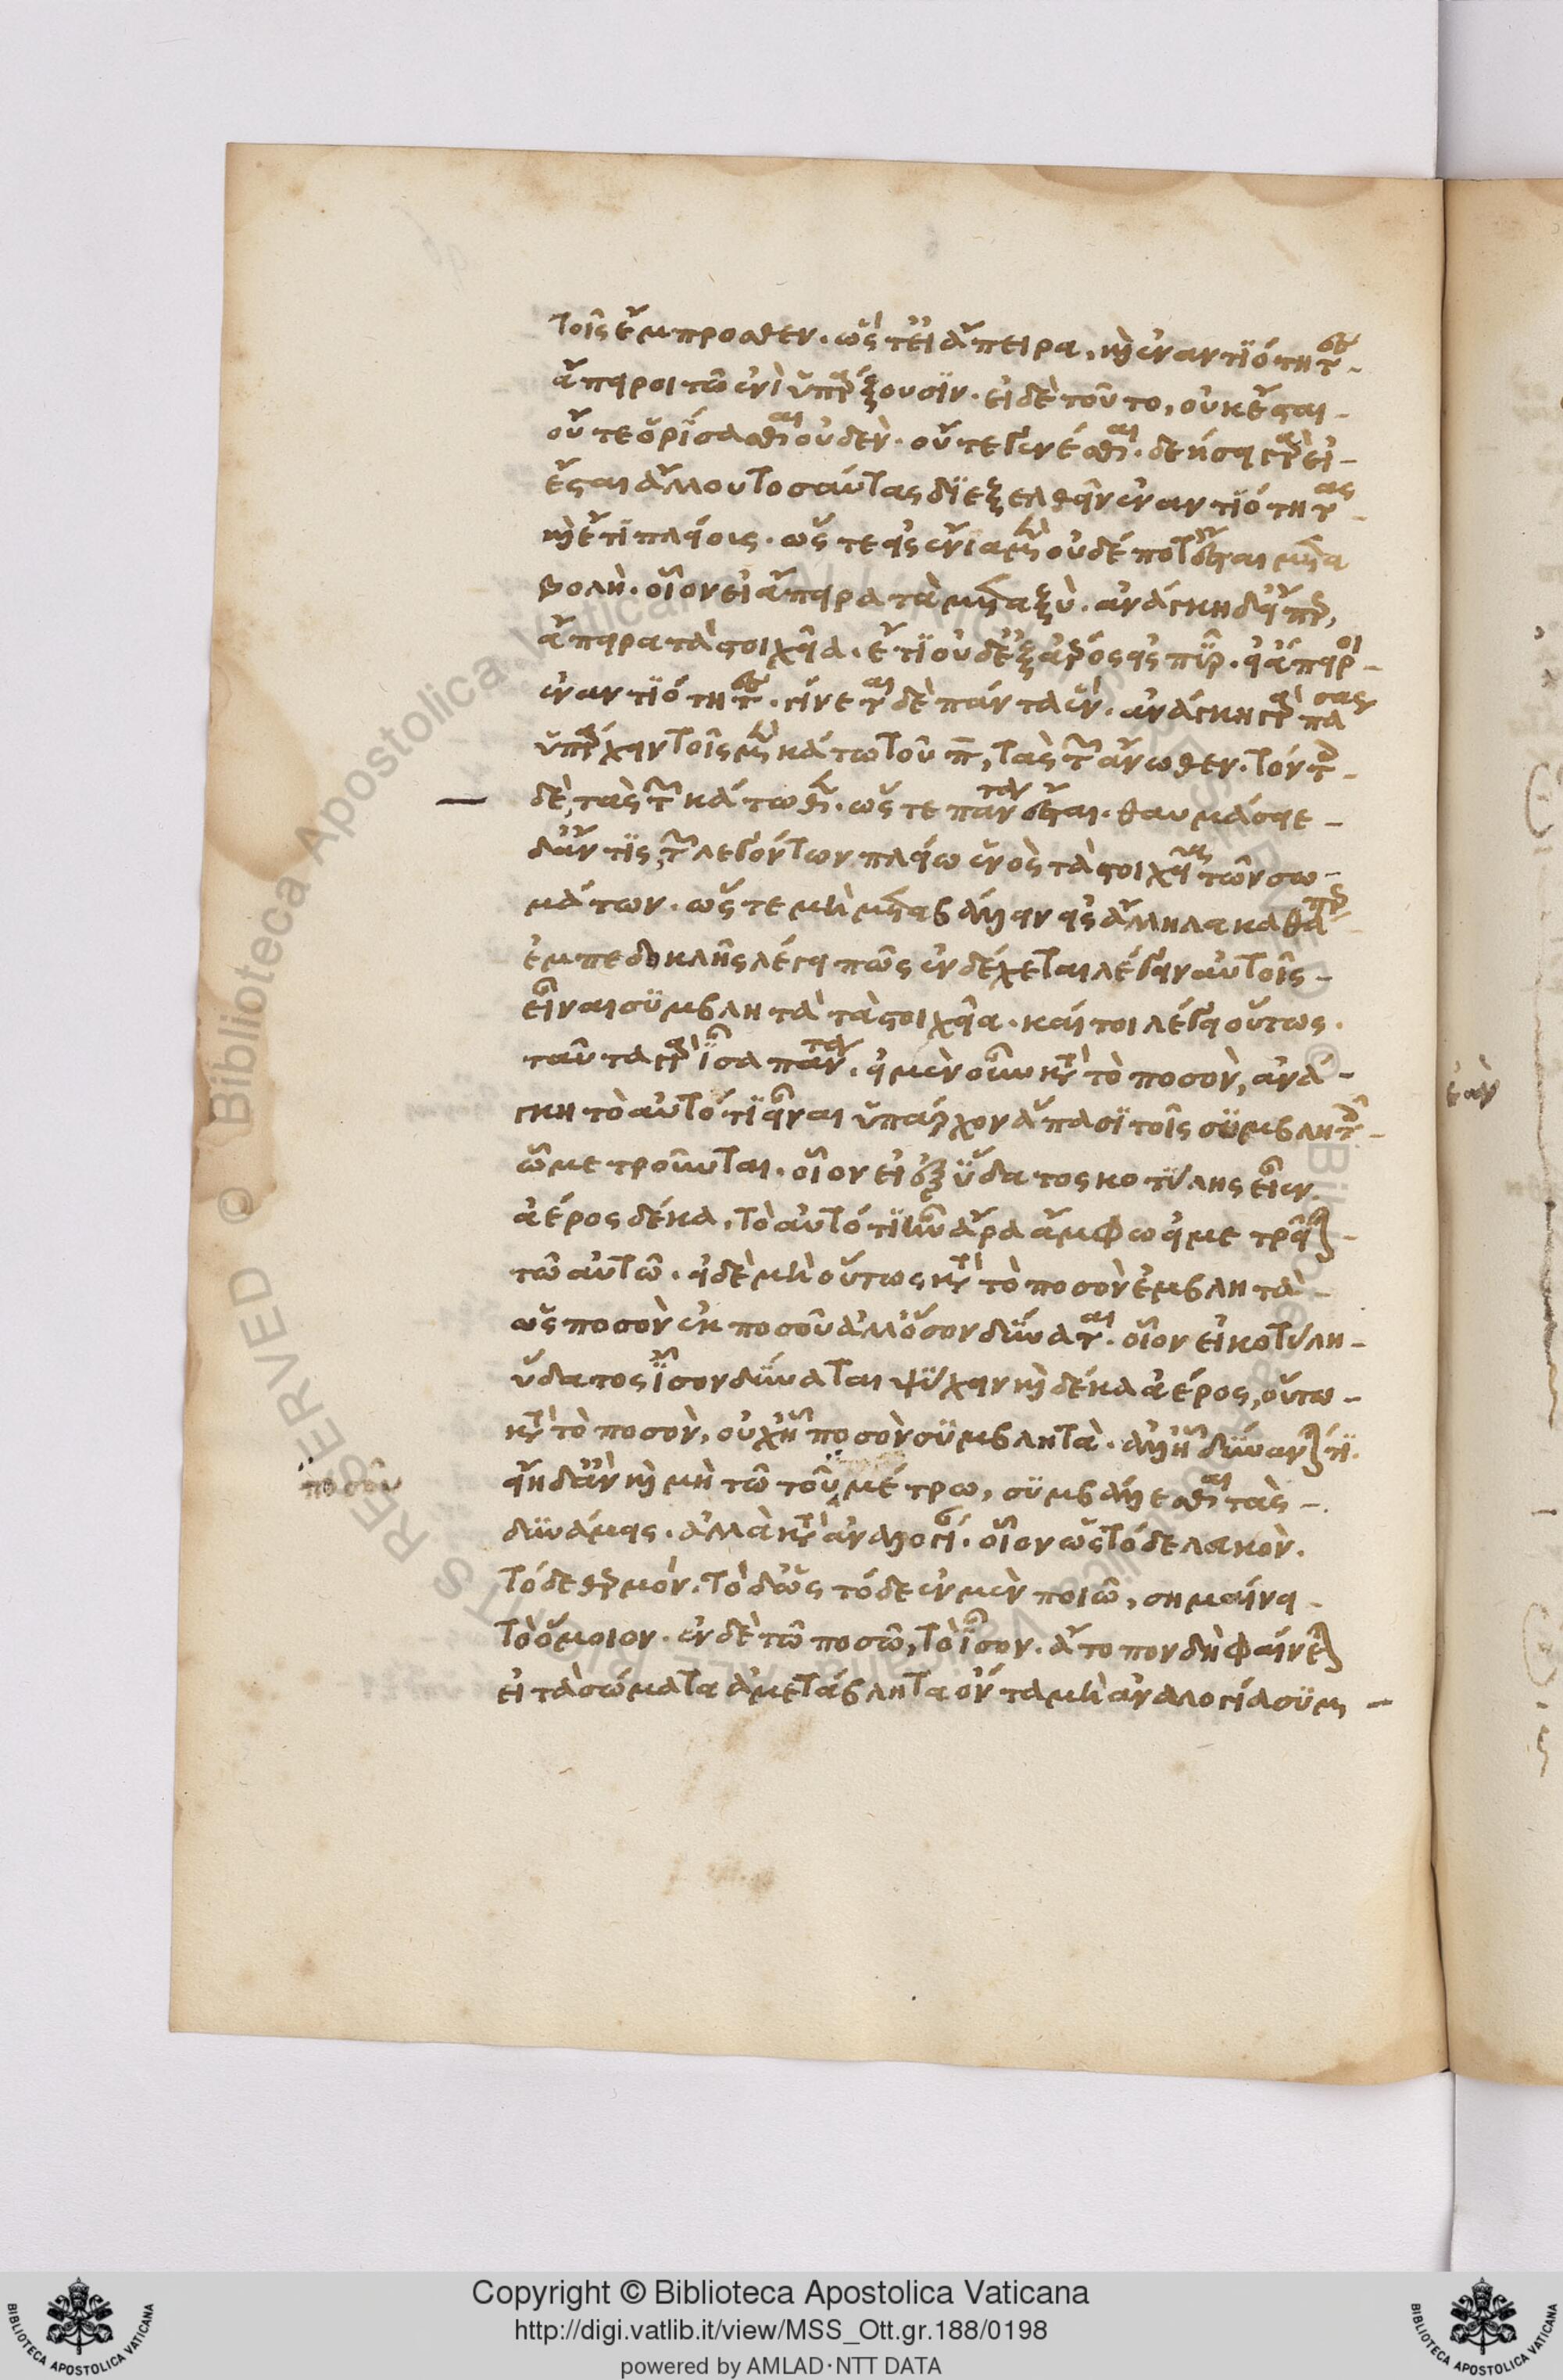 τοῖς ἔμπροσθεν. ὥστ' εἰ ἄπειρα, καὶ ἐναντιότητες
ἄπειροι τῶ ἑνὶ ὑπάρξουσιν. εἰ δὲ τοῦτο, οὐκ ἔσται
οὔτε ὁρίσασθαι οὐδὲν. οὔτε γενέσθαι. δεήσει γὰρ εἰ
ἔσται ἄλλου τοσαύτας διεξελθεῖν ἐναντιότητας
καὶ ἔτι πλείους. ὥστε εἰς ἔνια μὲν οὐδέποτ' ἔσται μετα
βολὴ. οἷον εἰ ἄπειρα τὰ μεταξὺ. ἀνάγκη δ' εἴπερ,
ἄπειρα τὰ στοιχεῖα. ἔτι οὐδ' ἐξ ἀέρος εἰς πῦρ. εἰ ἄπειροι
ἐναντιότητες. γίνεται δὲ πάντα ἕν. ἀνάγκη γὰρ πάσας
ὑπάρχειν τοῖς μὲν κάτω τοῦ π, τὰς τῶν ἄνωθεν. τούτοις
δὲ, τὰς τῶν κάτωθεν. ὥστε πάντα ἓν ἔσται. θαυμάσειε
δ' ἄν τις τῶν λεγόντων πλείω ἑνὸς τὰ στοιχεῖα τῶν σω
μάτων. ὥστε μὴ μεταβάλλειν εἰς ἄλληλα καθάπερ
ἐμπεδοκλῆς λέγει πῶς ἐνδέχεται λέγειν αὐτοῖς
εἶναι συμβλητὰ τὰ στοιχεῖα. καίτοι λέγει οὕτως.
ταῦτα γὰρ ἶσα πάντα. εἰ μὲν οὖν κατὰ τὸ ποσὸν, ἀνά
γκη τὸ αὐτό τι εἶναι ὑπάρχον ἅπασι τοῖς συμβλητοῖς
ὧ μετροῦνται. οἷον εἰ ἐξ ὕδατος κοτύλης εἶεν
ἀέρος δέκα, τὸ αὐτό τι ἦν ἄρα ἄμφω εἰ μετρεῖται
τῶ αὐτῶ. εἰ δὲ μὴ οὕτως κατὰ τὸ ποσὸν ἐμβλητὰ
ὡς ποσὸν ἐκ ποσοῦ ἀλλ' ὅσον δύναται. οἷον εἰ κοτύλη
ὕδατος ἴσον δύναται ψύχειν καὶ δέκα ἀέρος, οὕτω
κατὰ τὸ ποσὸν, οὐχ ἧ ποσὸν συμβλητὰ. ἀλλ' ἧ δύνανταί τι.
εἴη δ' ἂν καὶ μὴ τῶ τοῦ μέτρω, συμβάλλεσθαι τὰς
ποσοῦ
δυνάμεις. ἀλλὰ κατ' ἀναλογίαν. οἷον ὡς τόδε λευκὸν.
τόδε θερμὸν. τὸ δ' ὡς τόδε ἐν μὲν ποιῶ, σημαίνει
τὸ ὅμοιον. ἐν δὲ τῶ ποσῶ, τὸ ἴσον. ἄτοπον δὴ φαίνεται
εἰ τὰ σώματα ἀμετάβλητα ὄντα μὴ ἀναλογία συμ
ἐὰν
Copyright © Biblioteca Apostolica Vaticana
http://digi.vatlib.it/view/MSS_Ott.gr.188/0198
powered by AMLAD·NTT DATA